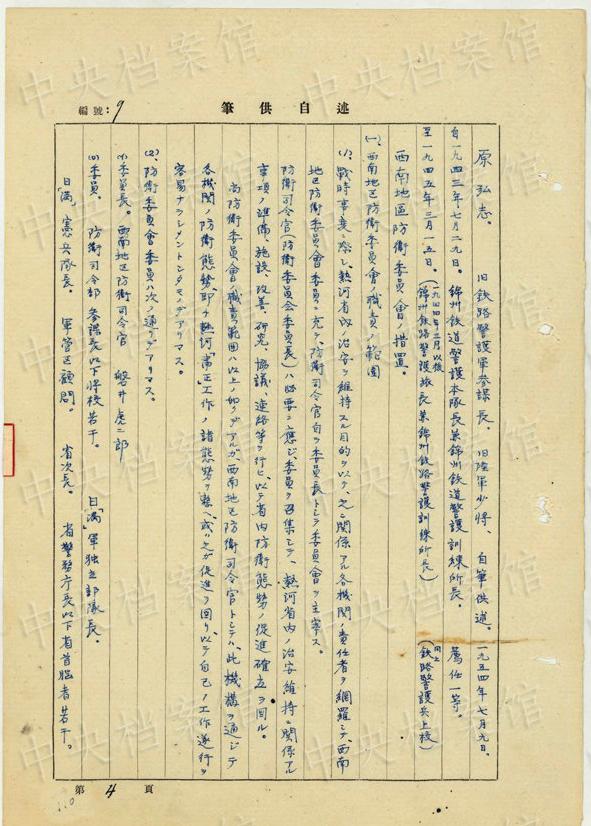 述自供筆
編號:9
原弘志。 旧鉄路警護軍参謀長。 旧陸軍少將。 自筆供述。 一九五四年七月九日。
自一九四三年七月二九日。 錦州鉄道警護本隊長兼錦州鉄道警護訓練所長。 薦任一等。
至一九四五年三月一五日。(一九四四年三月以後 錦州鉄路警護旅長兼錦州鉄路警護訓練所長)(同上 鉄路警護兵上校)
西南地區防衛委員會ノ措置。
(一)、西南地区防衛委員會ノ職責ノ範囲
(1)、戦時事変ニ際シ、熱河省内ノ治安ヲ維持スル目的ヲ以テ、之ニ関係アル各機関ノ責任者ヲ網羅シテ、西南
地区防衛委員會委員ニ充テ、防衛司令官自ラ委員長トシテ委員會ヲ主宰ス。
防衛司令官(防衛委員会委員長)ハ必要ニ應ジ、委員ヲ召集シテ、熱河省内ノ治安維持ニ関係アル
事項ノ準備、施設、改善、研究、協議、連絡等ヲ行ヒ、以テ省内防衛態勢ノ促進確立ヲ図ル。
尚防衛委員會ノ職責範囲ハ以上ノ如クデアルガ、西南地区防衛司令官トシテハ、此ノ機構ヲ通ジテ
各機関ノ防衛態勢、即チ熱河「肅正」工作ノ諸態勢ヲ整ヘ、或ハ之ガ促進ヲ図リ、以テ自己ノ工作遂行ヲ
容易ナラシメントシタモノデアリマス。
(2)、防衛委員會委員ハ次ノ通リデアリマス。
(イ)委員長。西南地区防衛司令官 磐井虎二郎
(ロ)委員。 防衛司令部 参謀長以下將校若干。 日「満」軍独立部隊長。
日「満」憲兵隊長。 軍管区顧問。 省次長。 省警務庁長以下省首脳者若干。
第 4 頁
中央档案馆